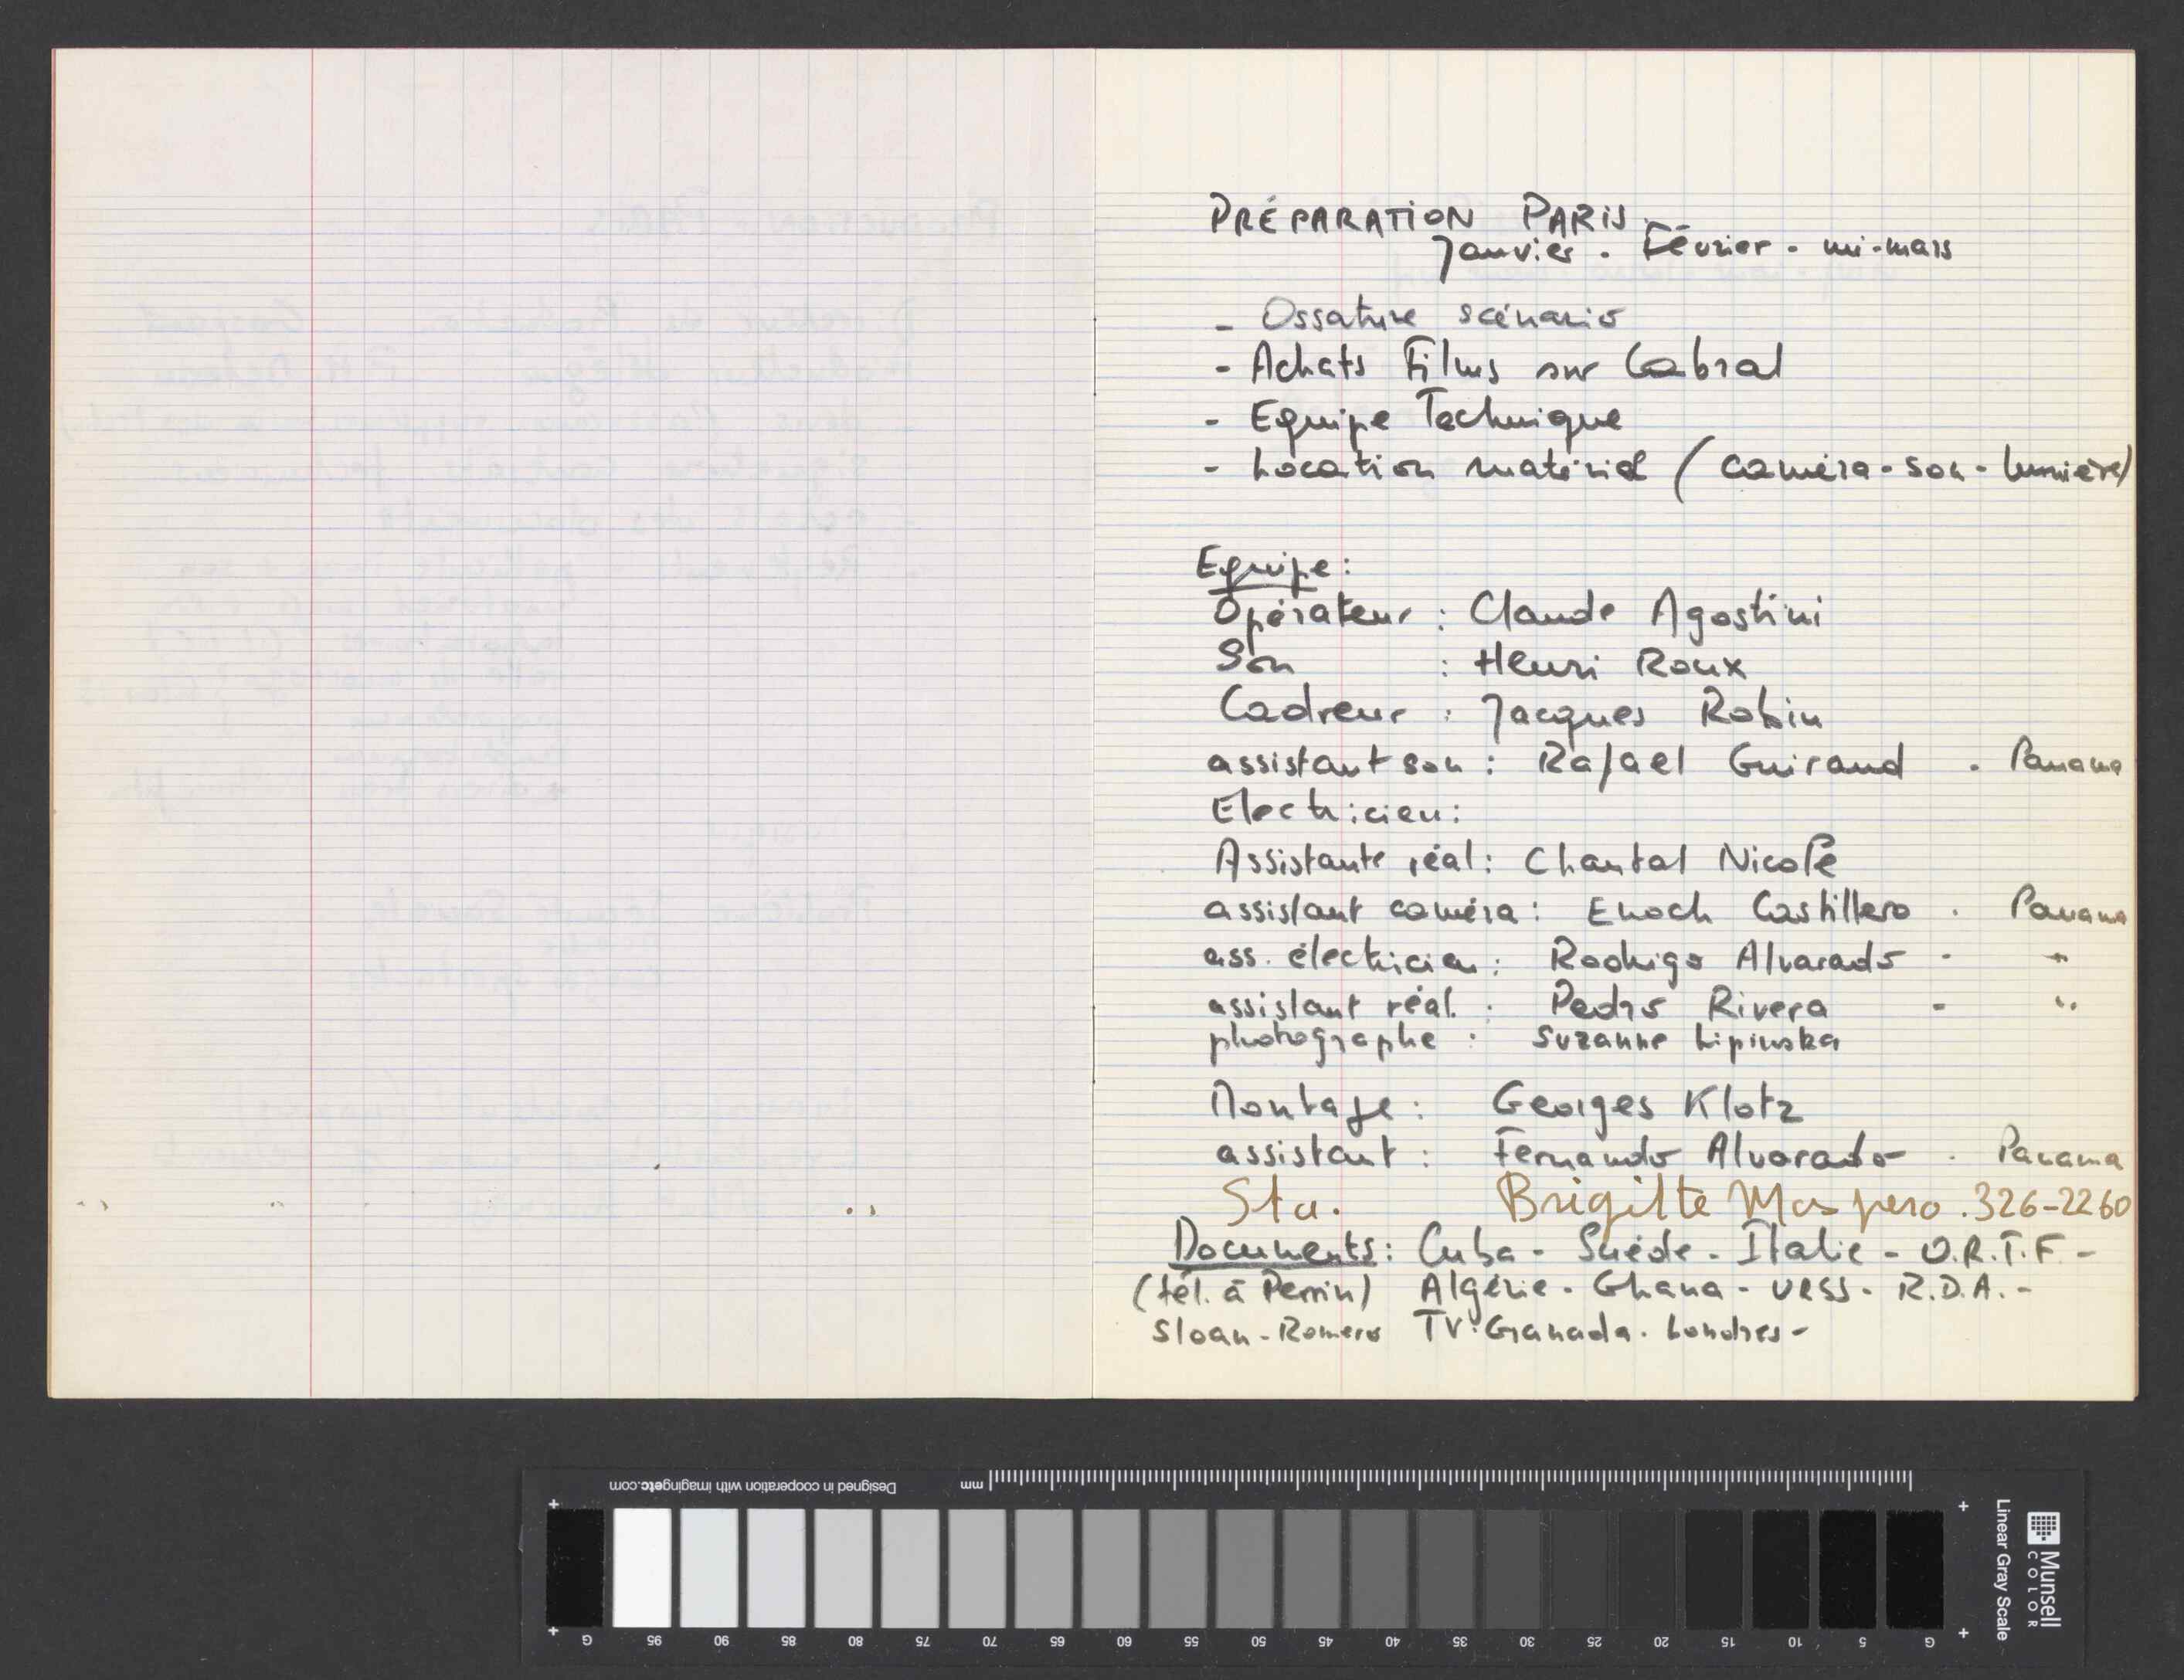 PRÉPARATION PARIS.
Janvier - Février - mi-mars
- Ossature scénario
- Achats Films sur Cabral
- Equipe Technique
- Location matériel (caméra - son - lumière)
Equipe:
Opérateur : Claude Agostini
Son : Henri Roux
Cadreur : Jacques Robin
assistant son : Rafael Guiraud - Panama
Electricien:
Assistante réal: Chantal Nicole
assistant caméra: Enoch Castillero - Panama
ass. électricien: Rodrigo Alvarado - "
assistant réal. : Pedro Rivera - "
photographe : Suzanne Lipinska
Montage: Georges Klotz
assistant : Fernando Alvarado - Panama
Sta. Brigitte Maspero. 326-2260
Documents: Cuba - Suède - Italie - O.R.T.F. -
(tél. à Perrin) Algérie - Ghana - URSS - R.D.A. -
Sloan - Romero TV. Granada. Londres -
mm
Designed in cooperation with imagingetc.com
G 95 90 85 80 75 70 65 60 55 50 45 40 35 30 25 20 15 10 5 G
Munsell
COLOR
Linear Gray Scale